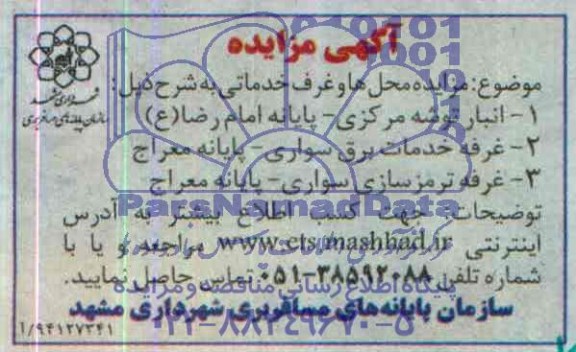 آگهی مزایده
شهرداری مشهد
سازمان پایانه‌های مسافربری
موضوع: مزایده محل ها و غرف خدماتی به شرح ذیل:
۱- انبار توشه مرکزی- پایانه امام رضا(ع)
۲- غرفه خدمات برق سواری- پایانه معراج
۳- غرفه ترمزسازی سواری- پایانه معراج
توضیحات: جهت کسب اطلاع بیشتر به آدرس
اینترنتی www.cts.mashhad.ir مراجعه و یا با
شماره تلفن ۳۸۵۹۲۰۸۸-۰۵۱ تماس حاصل نمایید.
سازمان پایانه‌های مسافربری شهرداری مشهد
۱/۹۴۱۲۷۳۴۱
ParsNamadData
پایگاه اطلاع رسانی مناقصه و مزایده
۰۲۱-۸۸۳۴۹۶۷۰-۵